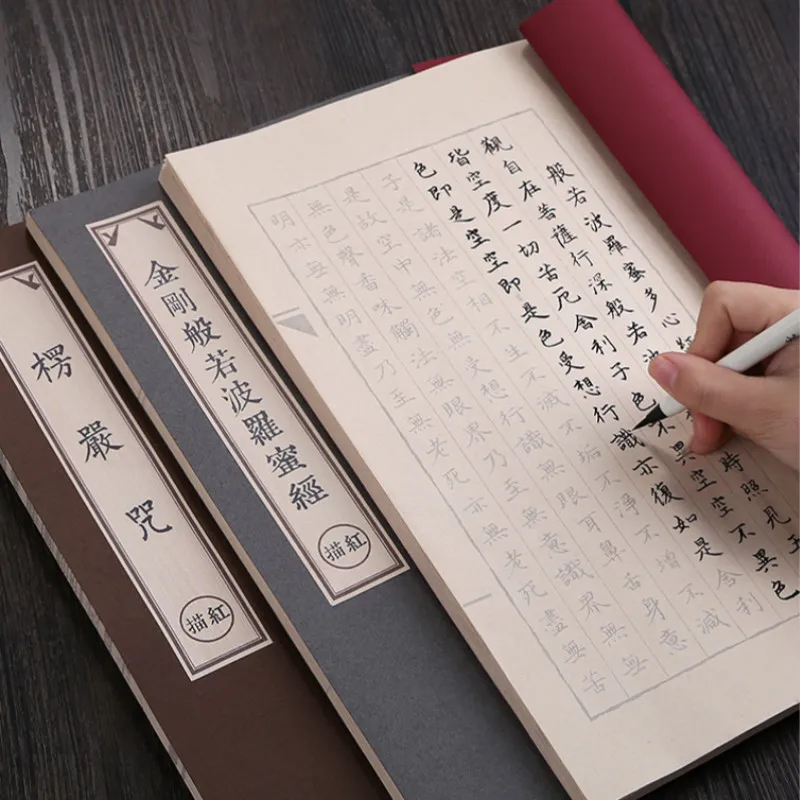 般若波羅蜜多心
觀自在菩薩行深般若波
時照見五
皆空度一切苦厄舍利子色不異空空不異色
色即是空空即是色受想行識亦復如是舍利
子是諸法空相不生不滅不垢不淨不增不減
是故空中無色無受想行識無眼耳鼻舌身意
無色聲香味觸法無眼界乃至無意識界無無
明亦無無明盡乃至無老死亦無老死盡無苦
金剛般若波羅蜜經
描紅
楞嚴咒
描紅